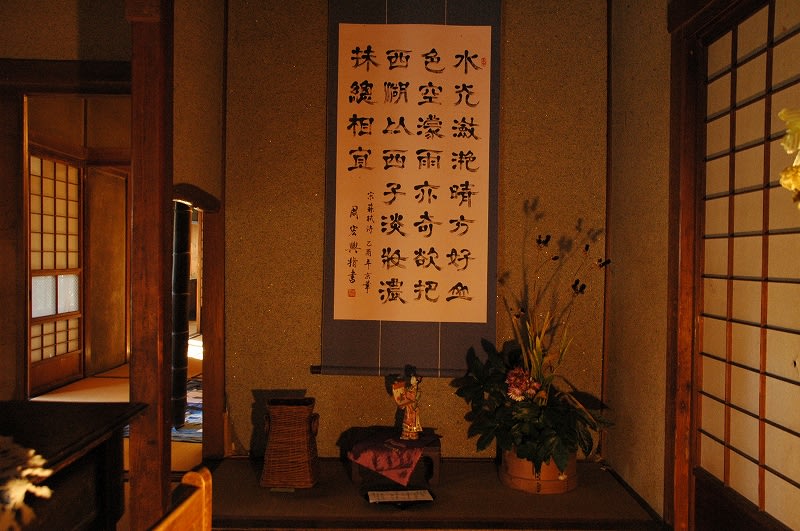 水光瀲滟晴方好山
色空濛雨亦奇欲把
西湖比西子淡妝濃
抹總相宜
宋蘇軾詩 乙酉年京華
周宏興指書